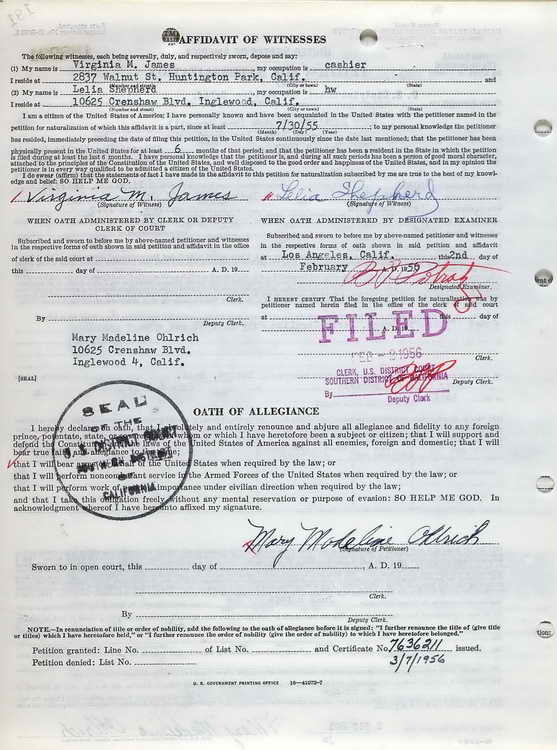 AFFIDAVIT OF WITNESSES
The following witnesses, each being severally, duly, and respectively sworn, depose and say:
(1) My name is Virginia M. James, my occupation is cashier
I reside at 2837 Walnut St. Huntington Park, Calif. and
(2) My name is Lelia Shepherd, my occupation is hw
I reside at 10625 Crenshaw Blvd. Inglewood, Calif.
I am a citizen of the United States of America; I have personally known and have been acquainted in the United States with the petitioner named in the
petition for naturalization of which this affidavit is a part, since at least 7/30/55; to my personal knowledge the petitioner
(Month) (Day) (Year)
has resided, immediately preceding the date of filing this petition, in the United States continuously since the date last mentioned; that the petitioner has been
physically present in the United States for at least 6 months of that period; and that the petitioner has been a resident in the State in which the petition
is filed during at least the last 6 months. I have personal knowledge that the petitioner is, and during all such periods has been a person of good moral character,
attached to the principles of the Constitution of the United States, and well disposed to the good order and happiness of the United States, and in my opinion the
petitioner is in every way qualified to be admitted a citizen of the United States.
I do swear (affirm) that the statements of fact I have made in this affidavit to this petition for naturalization subscribed by me are true to the best of my knowl-
edge and belief: SO HELP ME GOD.
Virginia M. James Lelia Shepherd
(Signature of Witness) (Signature of Witness)
WHEN OATH ADMINISTERED BY CLERK OR DEPUTY
CLERK OF COURT
Subscribed and sworn to before me by above-named petitioner and witnesses
in the respective forms of oath shown in said petition and affidavit in the office
of clerk of the said court at
this day of A. D. 19
Clerk.
By
Deputy Clerk.
WHEN OATH ADMINISTERED BY DESIGNATED EXAMINER
Subscribed and sworn to before me by above-named petitioner and witnesses
in the respective forms of oath shown in said petition and affidavit
at Los Angeles, Calif. this 2nd day of
February A. D. 1956
Designated Examiner.
I HEREBY CERTIFY That the foregoing petition for naturalization was by
petitioner named herein filed in the office of the clerk of said court
at this day of
A. D. 19
FILED
FEB - 21956
Clerk.
CLERK, U.S. DISTRICT COURT
SOUTHERN DISTRICT OF CALIFORNIA
By Deputy Clerk
Deputy Clerk.
Mary Madeline Ohlrich
10625 Crenshaw Blvd.
Inglewood 4, Calif.
[SEAL]
SEAL
OF THE
U. S. DISTRICT COURT
SOUTHERN DISTRICT
OF
CALIFORNIA
OATH OF ALLEGIANCE
I hereby declare, on oath, that I absolutely and entirely renounce and abjure all allegiance and fidelity to any foreign
prince, potentate, state, or sovereignty of whom or which I have heretofore been a subject or citizen; that I will support and
defend the Constitution and laws of the United States of America against all enemies, foreign and domestic; that I will
bear true faith and allegiance to the same;
that I will bear arms on behalf of the United States when required by the law; or
that I will perform noncombatant service in the Armed Forces of the United States when required by the law; or
that I will perform work of national importance under civilian direction when required by the law;
and that I take this obligation freely without any mental reservation or purpose of evasion: SO HELP ME GOD. In
acknowledgment whereof I have hereunto affixed my signature.
Mary Madeline Ohlrich
(Signature of Petitioner)
Sworn to in open court, this day of , A. D. 19
Clerk.
By
Deputy Clerk.
NOTE.—In renunciation of title or order of nobility, add the following to the oath of allegiance before it is signed: "I further renounce the title of (give title
or titles) which I have heretofore held," or "I further renounce the order of nobility (give the order of nobility) to which I have heretofore belonged."
Petition granted: Line No. of List No. and Certificate No. 7636211 issued.
Petition denied: List No. 3/7/1956
U. S. GOVERNMENT PRINTING OFFICE 16—41072-7